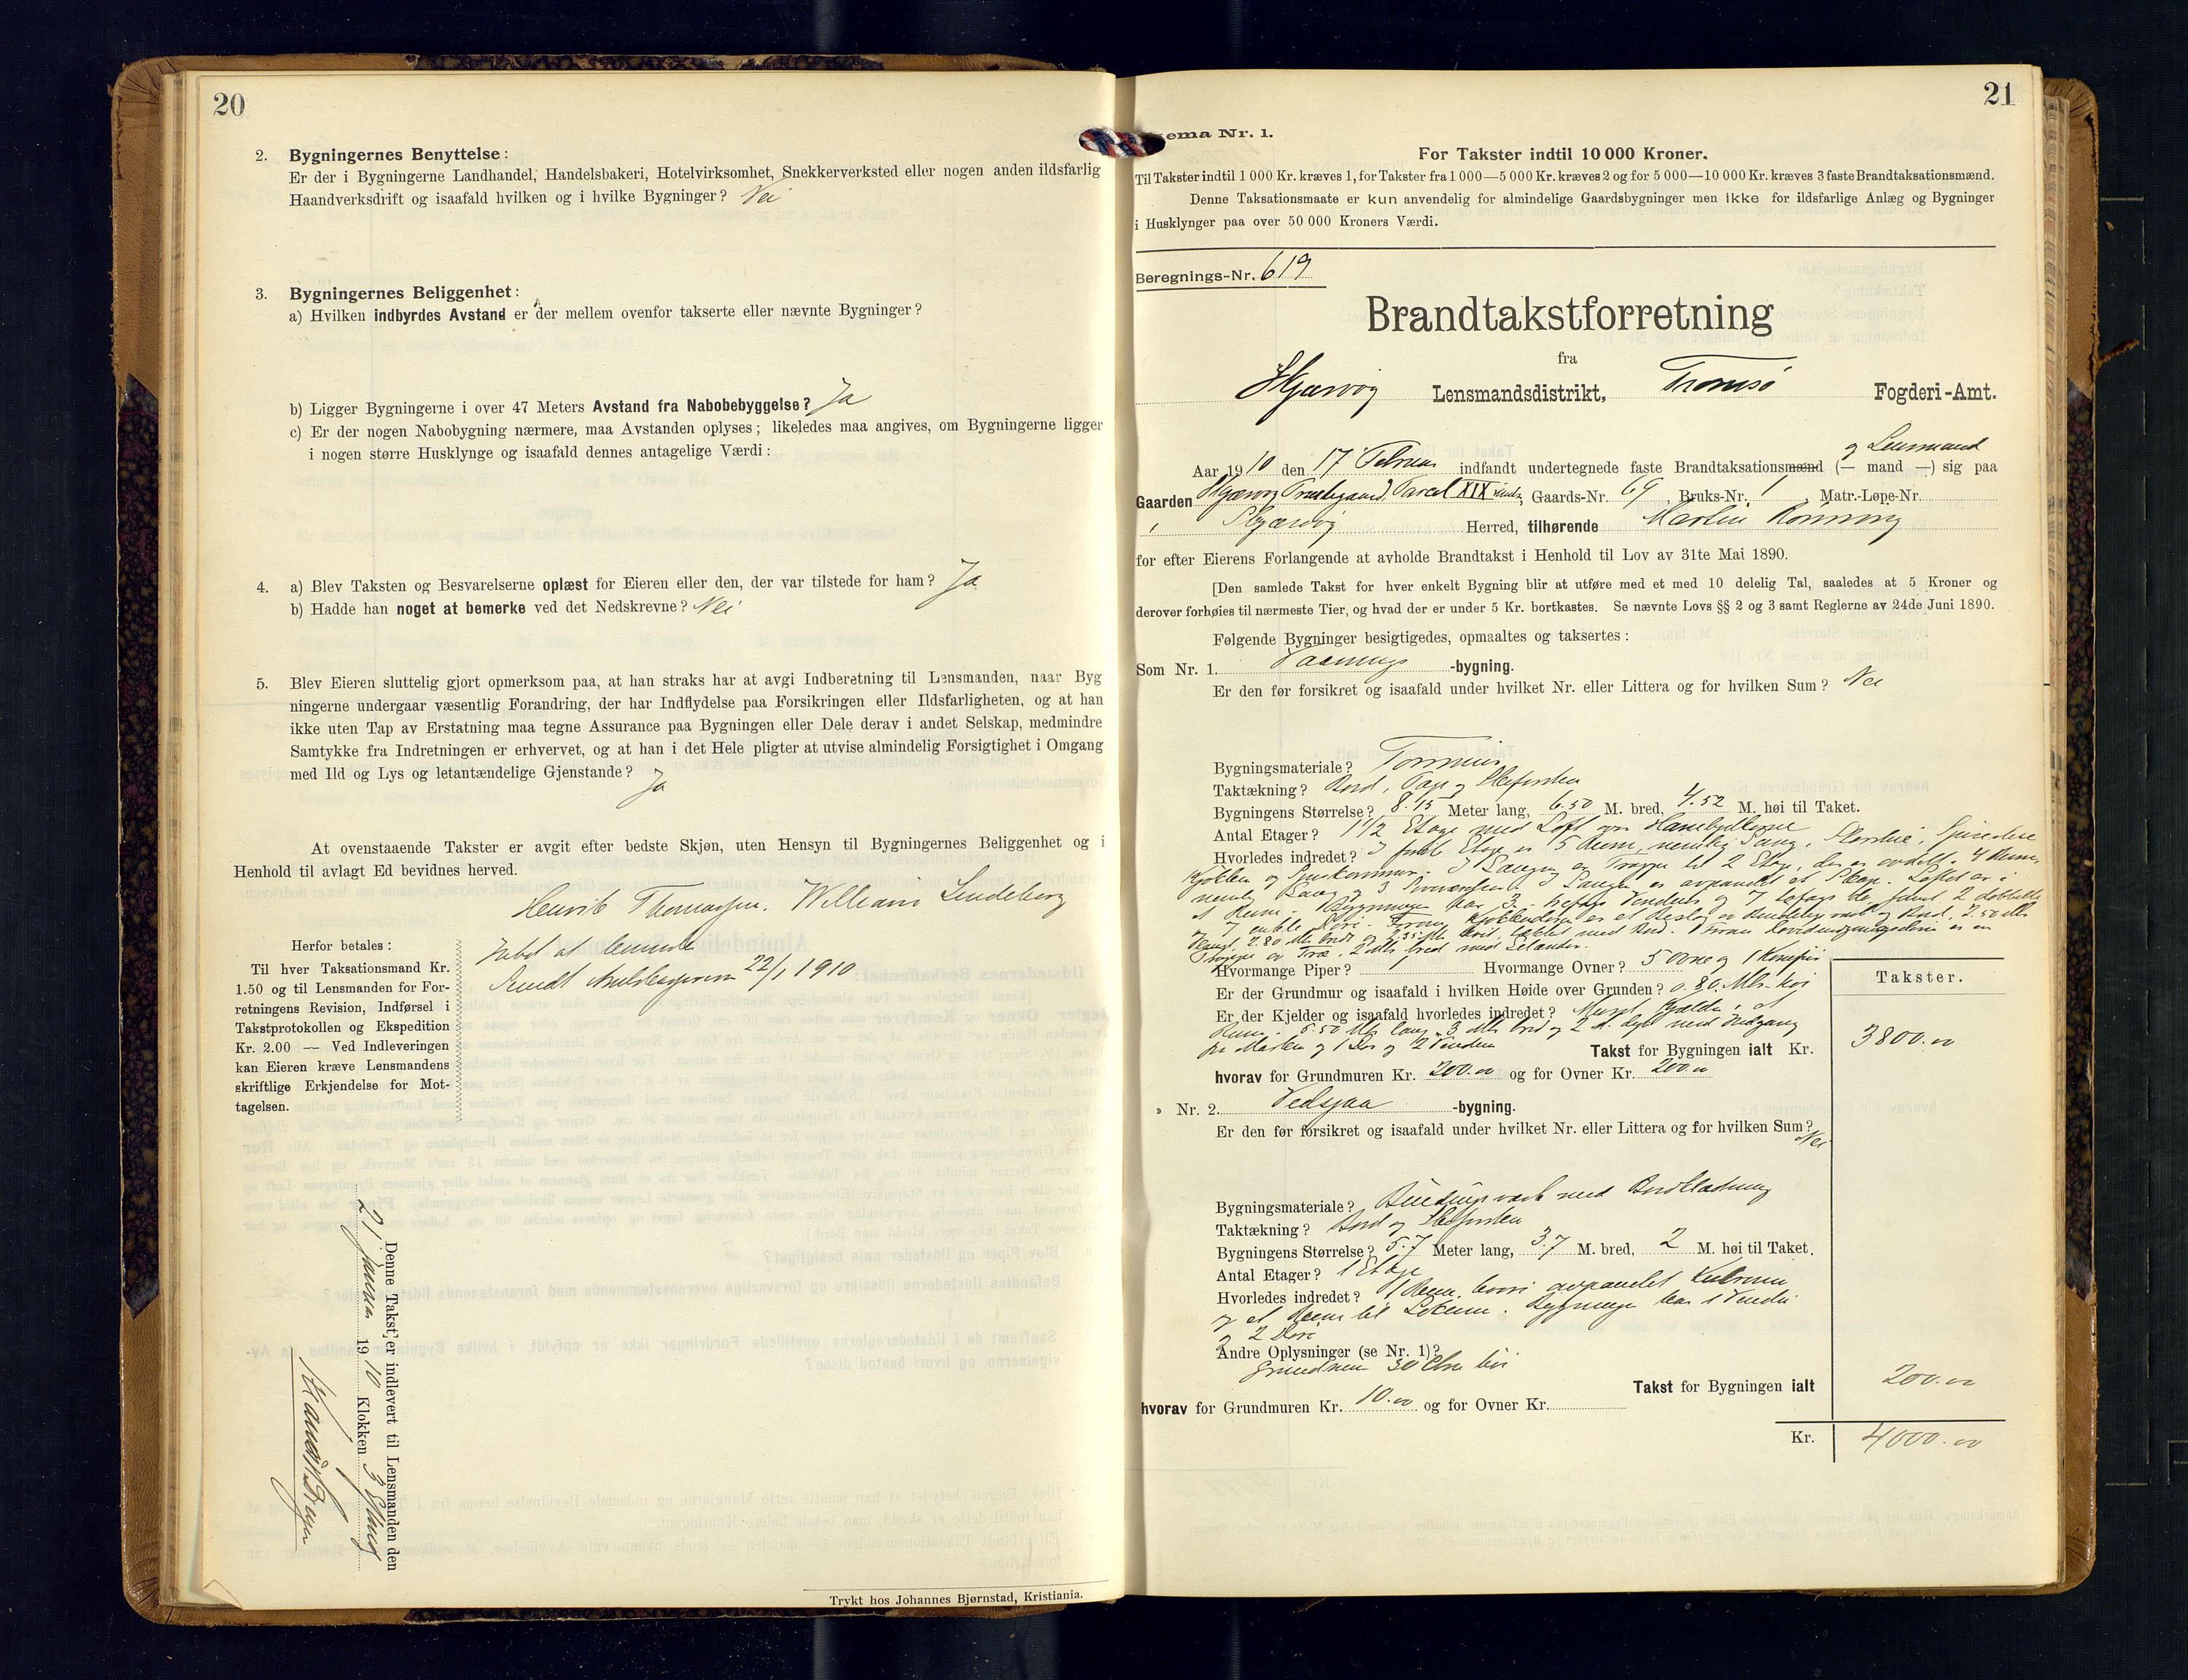 20
2. Bygningernes Benyttelse:
Er der i Bygningerne Landhandel, Handelsbakeri, Hotelvirksomhet, Snekkerverksted eller nogen anden ildsfarlig
Haandverksdrift og isaafald hvilken og i hvilke Bygninger? Nei
3. Bygningernes Beliggenhet:
a) Hvilken indbyrdes Avstand er der mellem ovenfor takserte eller nævnte Bygninger?
b) Ligger Bygningerne i over 47 Meters Avstand fra Nabobebyggelse? Ja
c) Er der nogen Nabobygning nærmere, maa Avstanden oplyses; likeledes maa angives, om Bygningerne ligger
i nogen større Husklynge og isaafald dennes antagelige Værdi:
4. a) Blev Taksten og Besvarelserne oplæst for Eieren eller den, der var tilstede for ham? Ja
b) Hadde han noget at bemerke ved det Nedskrevne? Nei
5. Blev Eieren sluttelig gjort opmerksom paa, at han straks har at avgi Indberetning til Lensmanden, naar Byg
ningerne undergaar væsentlig Forandring, der har Indflydelse paa Forsikringen eller Ildsfarligheten, og at han
ikke uten Tap av Erstatning maa tegne Assurance paa Bygningen eller Dele derav i andet Selskap, medmindre
Samtykke fra Indretningen er erhvervet, og at han i det Hele pligter at utvise almindelig Forsigtighet i Omgang
med Ild og Lys og letantændelige Gjenstande? Ja
At ovenstaaende Takster er avgit efter bedste Skjøn, uten Hensyn til Bygningernes Beliggenhet og i
Henhold til avlagt Ed bevidnes herved.
Henrik Thomassen. William Lindeberg
Herfor betales:
Til hver Taksationsmand Kr.
1.50 og til Lensmanden for For-
retningens Revision, Indførsel i
Takstprotokollen og Ekspedition
Kr. 2.00 — Ved Indleveringen
kan Eieren kræve Lensmandens
skriftlige Erkjendelse for Mot-
tagelsen.
Intet at bemerke
Sendt 22/1 1910
Denne Takst er indlevert til Lensmanden den
21 januar 1910 Klokken 3
Trykt hos Johannes Bjørnstad, Kristiania.
21
ema Nr. 1.
For Takster indtil 10 000 Kroner.
Til Takster indtil 1 000 Kr. kræves 1, for Takster fra 1 000—5 000 Kr. kræves 2 og for 5 000—10 000 Kr. kræves 3 faste Brandtaksationsmænd.
Denne Taksationsmaate er kun anvendelig for almindelige Gaardsbygninger men ikke for ildsfarlige Anlæg og Bygninger
i Husklynger paa over 50 000 Kroners Værdi.
Beregnings-Nr. 619
Brandtakstforretning
fra
Skjærvøy Lensmandsdistrikt, Tromsø Fogderi-Amt.
og Lensmand
Aar 1910 den 17 Februar indfandt undertegnede faste Brandtaksationsmænd (— mand —) sig paa
Gaarden Skjærvøy Præstegaard, Parcel XIX Gaards-Nr. 69, Bruks-Nr. 1, Matr.-Løpe-Nr.
i Skjærvøy Herred, tilhørende Martin Rønning
for efter Eierens Forlangende at avholde Brandtakst i Henhold til Lov av 31te Mai 1890.
[Den samlede Takst for hver enkelt Bygning blir at utføre med et med 10 delelig Tal, saaledes at 5 Kroner og
derover forhøies til nærmeste Tier, og hvad der er under 5 Kr. bortkastes. Se nævnte Lovs §§ 2 og 3 samt Reglerne av 24de Juni 1890.
Følgende Bygninger besigtigedes, opmaaltes og taksertes:
Som Nr. 1. Vaanings -bygning.
Er den før forsikret og isaafald under hvilket Nr. eller Littera og for hvilken Sum? Nei
Bygningsmateriale? Tømmer
Taktækning? Bord, Pap og Skifersten
Bygningens Størrelse? 8.15 Meter lang, 6.50 M. bred, 4.52 M. høi til Taket.
Antal Etager? 1 1/2 Etage med Loft over Hanebjelkerne
Hvorledes indredet? I første Etage er 5 Rum, nemlig Gang, Storstue, Spisestue
Kjøkken og Spiskammer. I Gangen er Trappe til 2 Etage, der er avdelt i 4 Rum,
nemlig Gang og 3 Soveværelser. Loftet er i
et Rum. Bygningen har 3 Vinduer og 7 samt 2 dobbelte
og 7 enkle Døre.
Hvormange Piper? 1 Hvormange Ovner? 5 Ovne og 1 Komfyr
Er der Grundmur og isaafald i hvilken Høide over Grunden? 0.80 Mtr. høi
Er der Kjelder og isaafald hvorledes indredet? Muret Kjælder i et
Rum. 5.50 Mtr. lang, 3 Mtr. bred og 2 M. dyb med Nedgang
fra Marken og 1 Dør og 2 Vinduer
Takster.
Takst for Bygningen ialt Kr. 3800.00
hvorav for Grundmuren Kr. 200.00 og for Ovner Kr. 200.00
» Nr. 2. Vedsjaa -bygning.
Er den før forsikret og isaafald under hvilket Nr. eller Littera og for hvilken Sum? Nei
Bygningsmateriale? Bindingsverk med Bordklædning
Taktækning? Bord og Skifersten
Bygningens Størrelse? 5.7 Meter lang, 3.7 M. bred, 2 M. høi til Taket.
Antal Etager? 1 Etage
Hvorledes indredet? 1 Rum, hvori avpanelet Kulrum
og et Rum til Lokum. Bygningen har 1 Vindu
og 2 Døre
Andre Oplysninger (se Nr. 1)?
Grundmur 30 Ctm høi
Takst for Bygningen ialt 200.00
hvorav for Grundmuren Kr. 10.00 og for Ovner Kr.
Kr. 4000.00